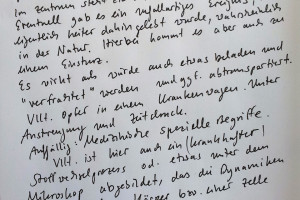 im Zentrum steht ein
Eventuell gab es ein unfallartiges Ereignis,
eigentlich heiter dahin gelebt wurde, wahrscheinlich
in der Natur. Hierbei kommt es aber auch zu
einem Einsturz.
Es wirkt als würde auch etwas beladen und
"verfrachtet" werden und ggf. abtransportiert.
Vllt. Opfer in einem Krankenwagen. Unter
Anstrengung und Zeitdruck.
Auffällig: Medizinische spezielle Begriffe.
Vllt. ist hier auch ein (krankhafter)
Stoffwechselprozess od. etwas unter dem
Mikroskop abgebildet, das die Dynamiken
Körper bzw. einer Zelle